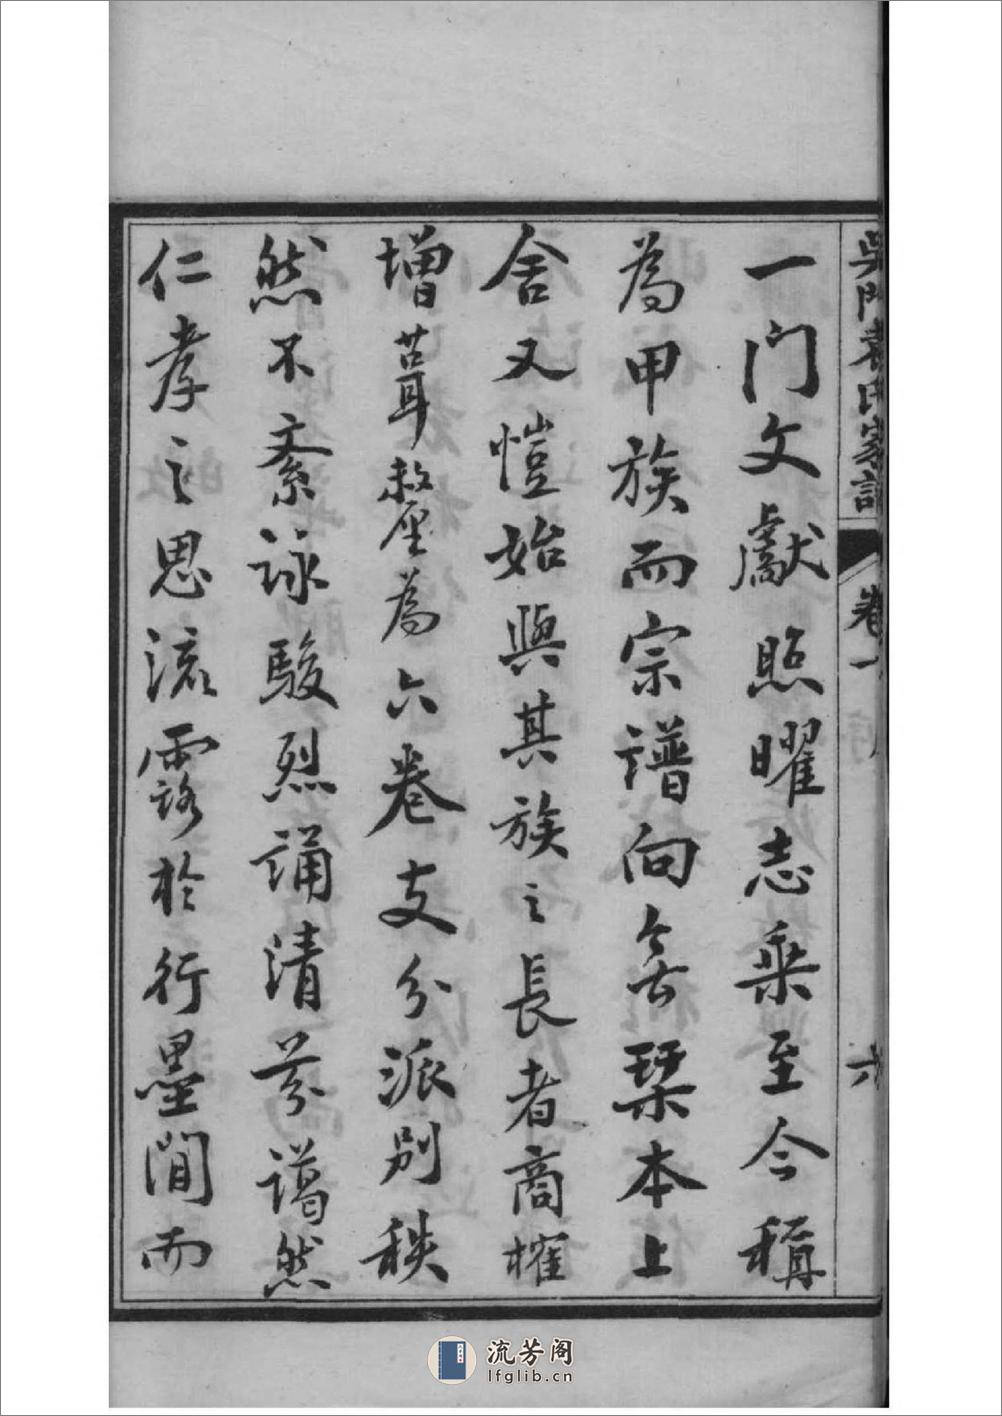 吳門袁氏家譜 卷一 序 六
一門文獻照曜志乘至今稱
為甲族而宗譜向無琹本上
舍又愷始與其族之長者商榷
增葺整為六卷支分派別秩
然不紊詠駿烈誦清芬藹然
仁孝之思流露於行墨間而
流芳阁
lfglib.cn